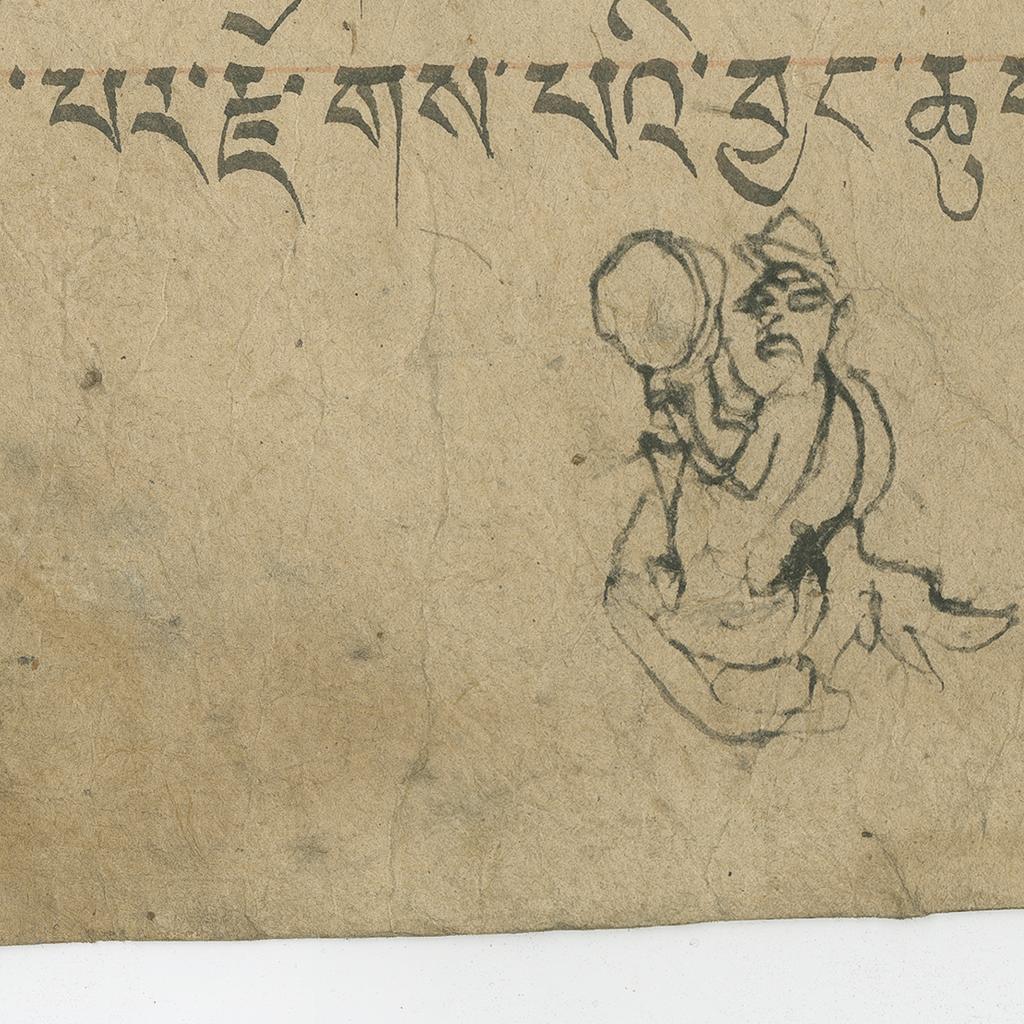 པར་རྫོགས་པའི་བྱང་ཆུ